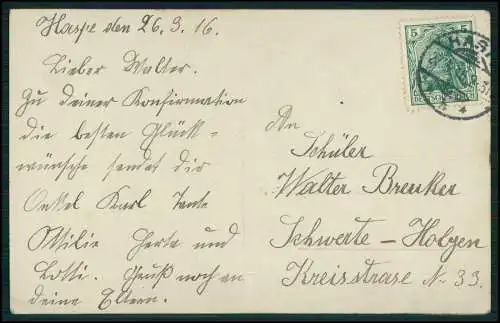 Haspe den 26.3.16.
Lieber Walter.
Zu deiner Konfirmation
die besten Glück-
wünsche sendet dir
Onkel Karl Tante
Ottilie Herta und
Lotti. Gruß noch an
deine Eltern.
5 5
HASPE
An
Schüler
Walter Breuker
Schwerte – Holzen
Kreisstrase No 33.